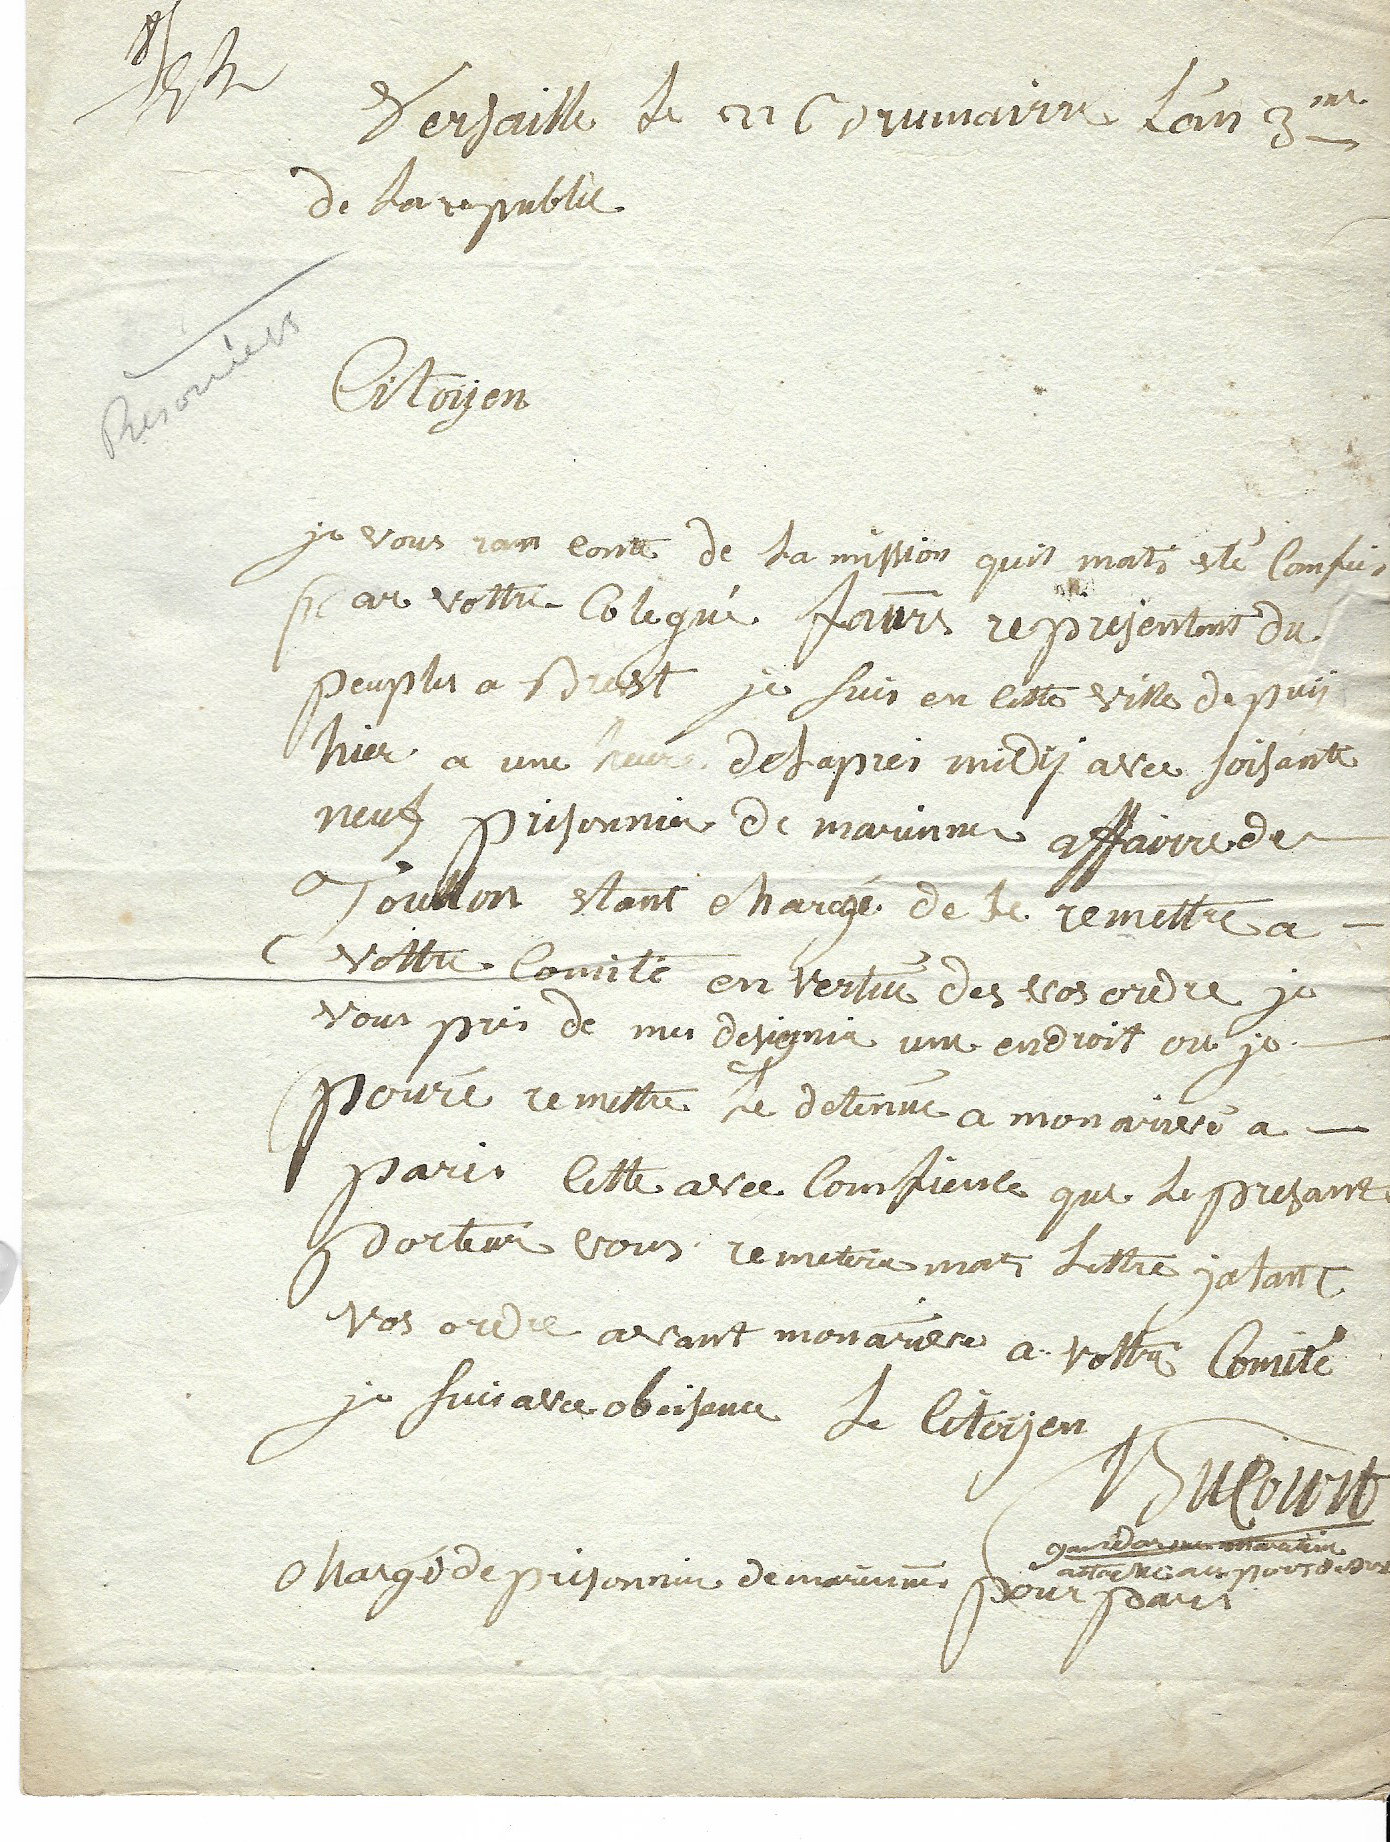 Versaille le 22 Brumairre Lan 3me
de La republic
Prisoniers
Citoyen
je vous ran conte de La mission quil mats esté Confiéz
par vottre Colegue faures representent du
peuples a Brest je suis en Cette ville depuij
hier a une heure delapres midij avec soisante
neuf prisonnier de marinne affairre de
Toullon etant chargé de le remettre a
vottre Comité en vertue des vos ordre je
vous pris de me designier une endroit ou je
pouré remettre le detenue a mon arivéé a
paris Cette avec Confience que le presant
porteur vous remettera mats Lettre jatant
vos ordre avant mon arivee a vottre Comité
je suis avec obeisance le Citoyen
Bucourt
gandarme maritim
attaché au port de Brest
Chargé de prisonnier de marinne pour paris